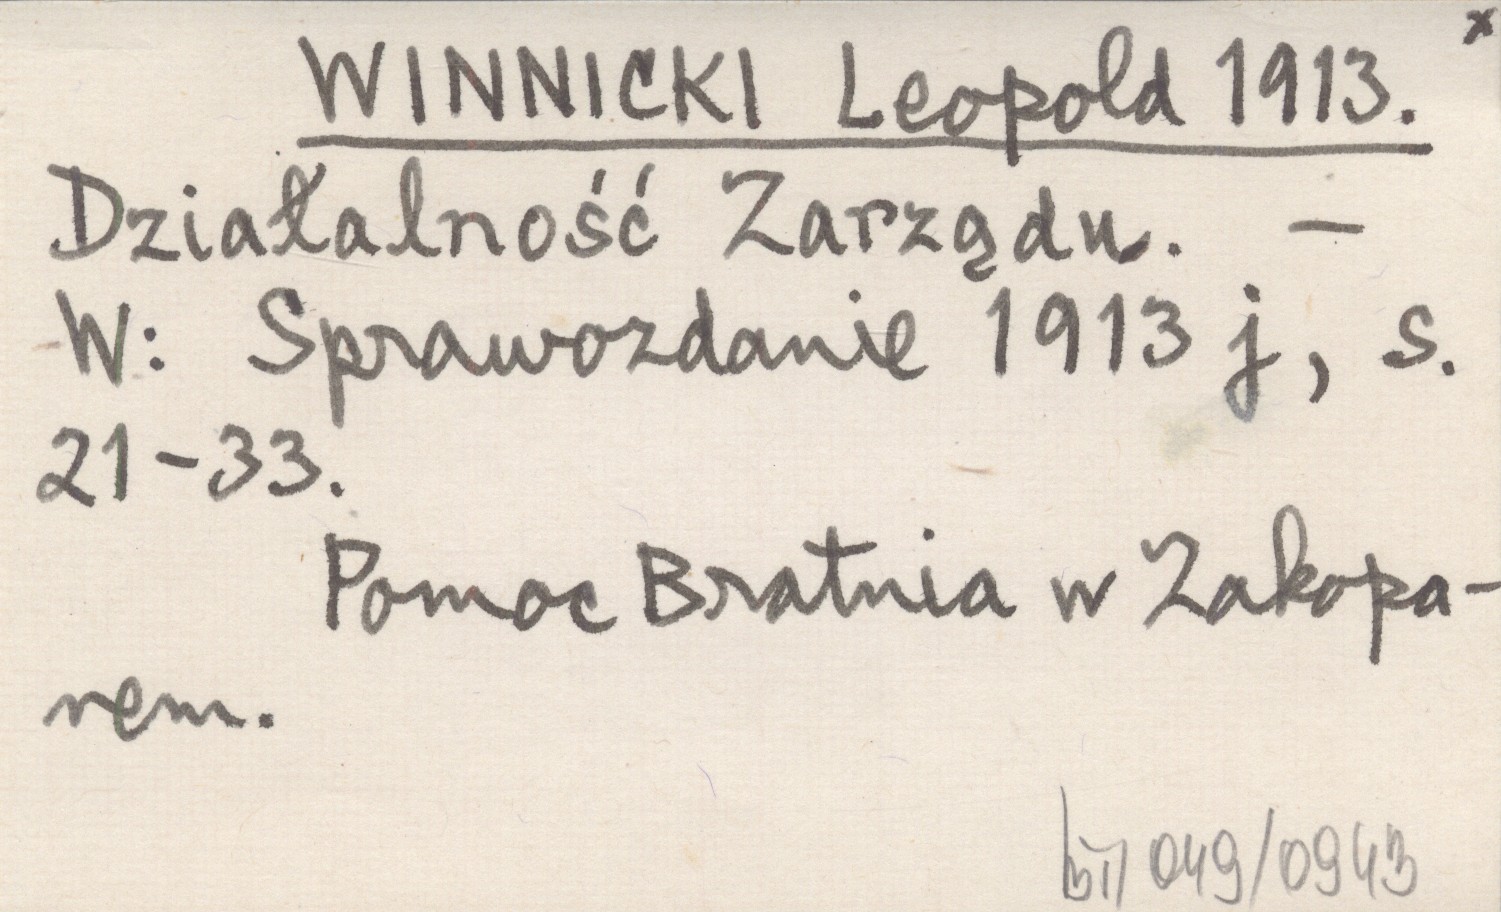 x
WINNICKI Leopold 1913.
Działalność Zarządu. –
W: Sprawozdanie 1913 j, s.
21-33.
Pomoc Bratnia w Zakopa-
nem.
049/0943